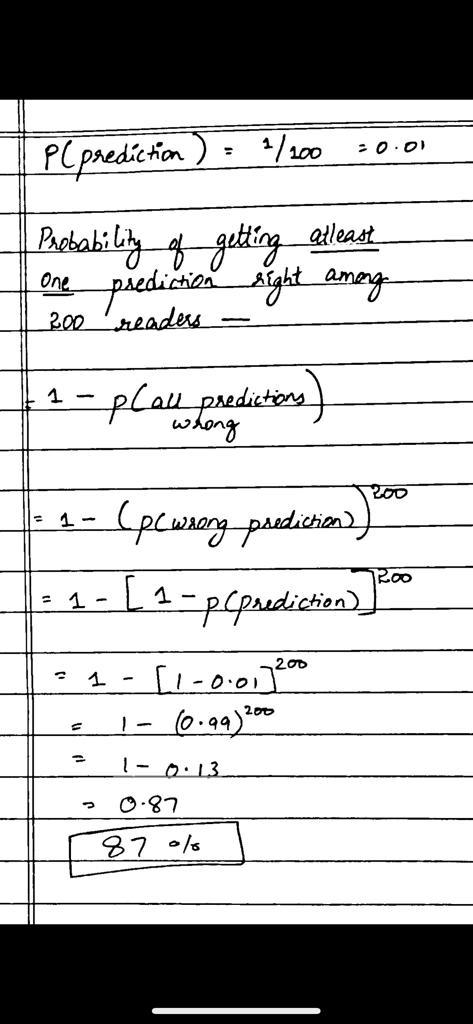 P(prediction) = 1/100 = 0.01
Probability of getting atleast
one prediction right among
200 readers —
= 1 - p(all predictions
wrong)
= 1 - (p(wrong prediction))^200
= 1 - [1 - p(prediction)]^200
= 1 - [1-0.01]^200
= 1 - (0.99)^200
= 1 - 0.13
= 0.87
87 %